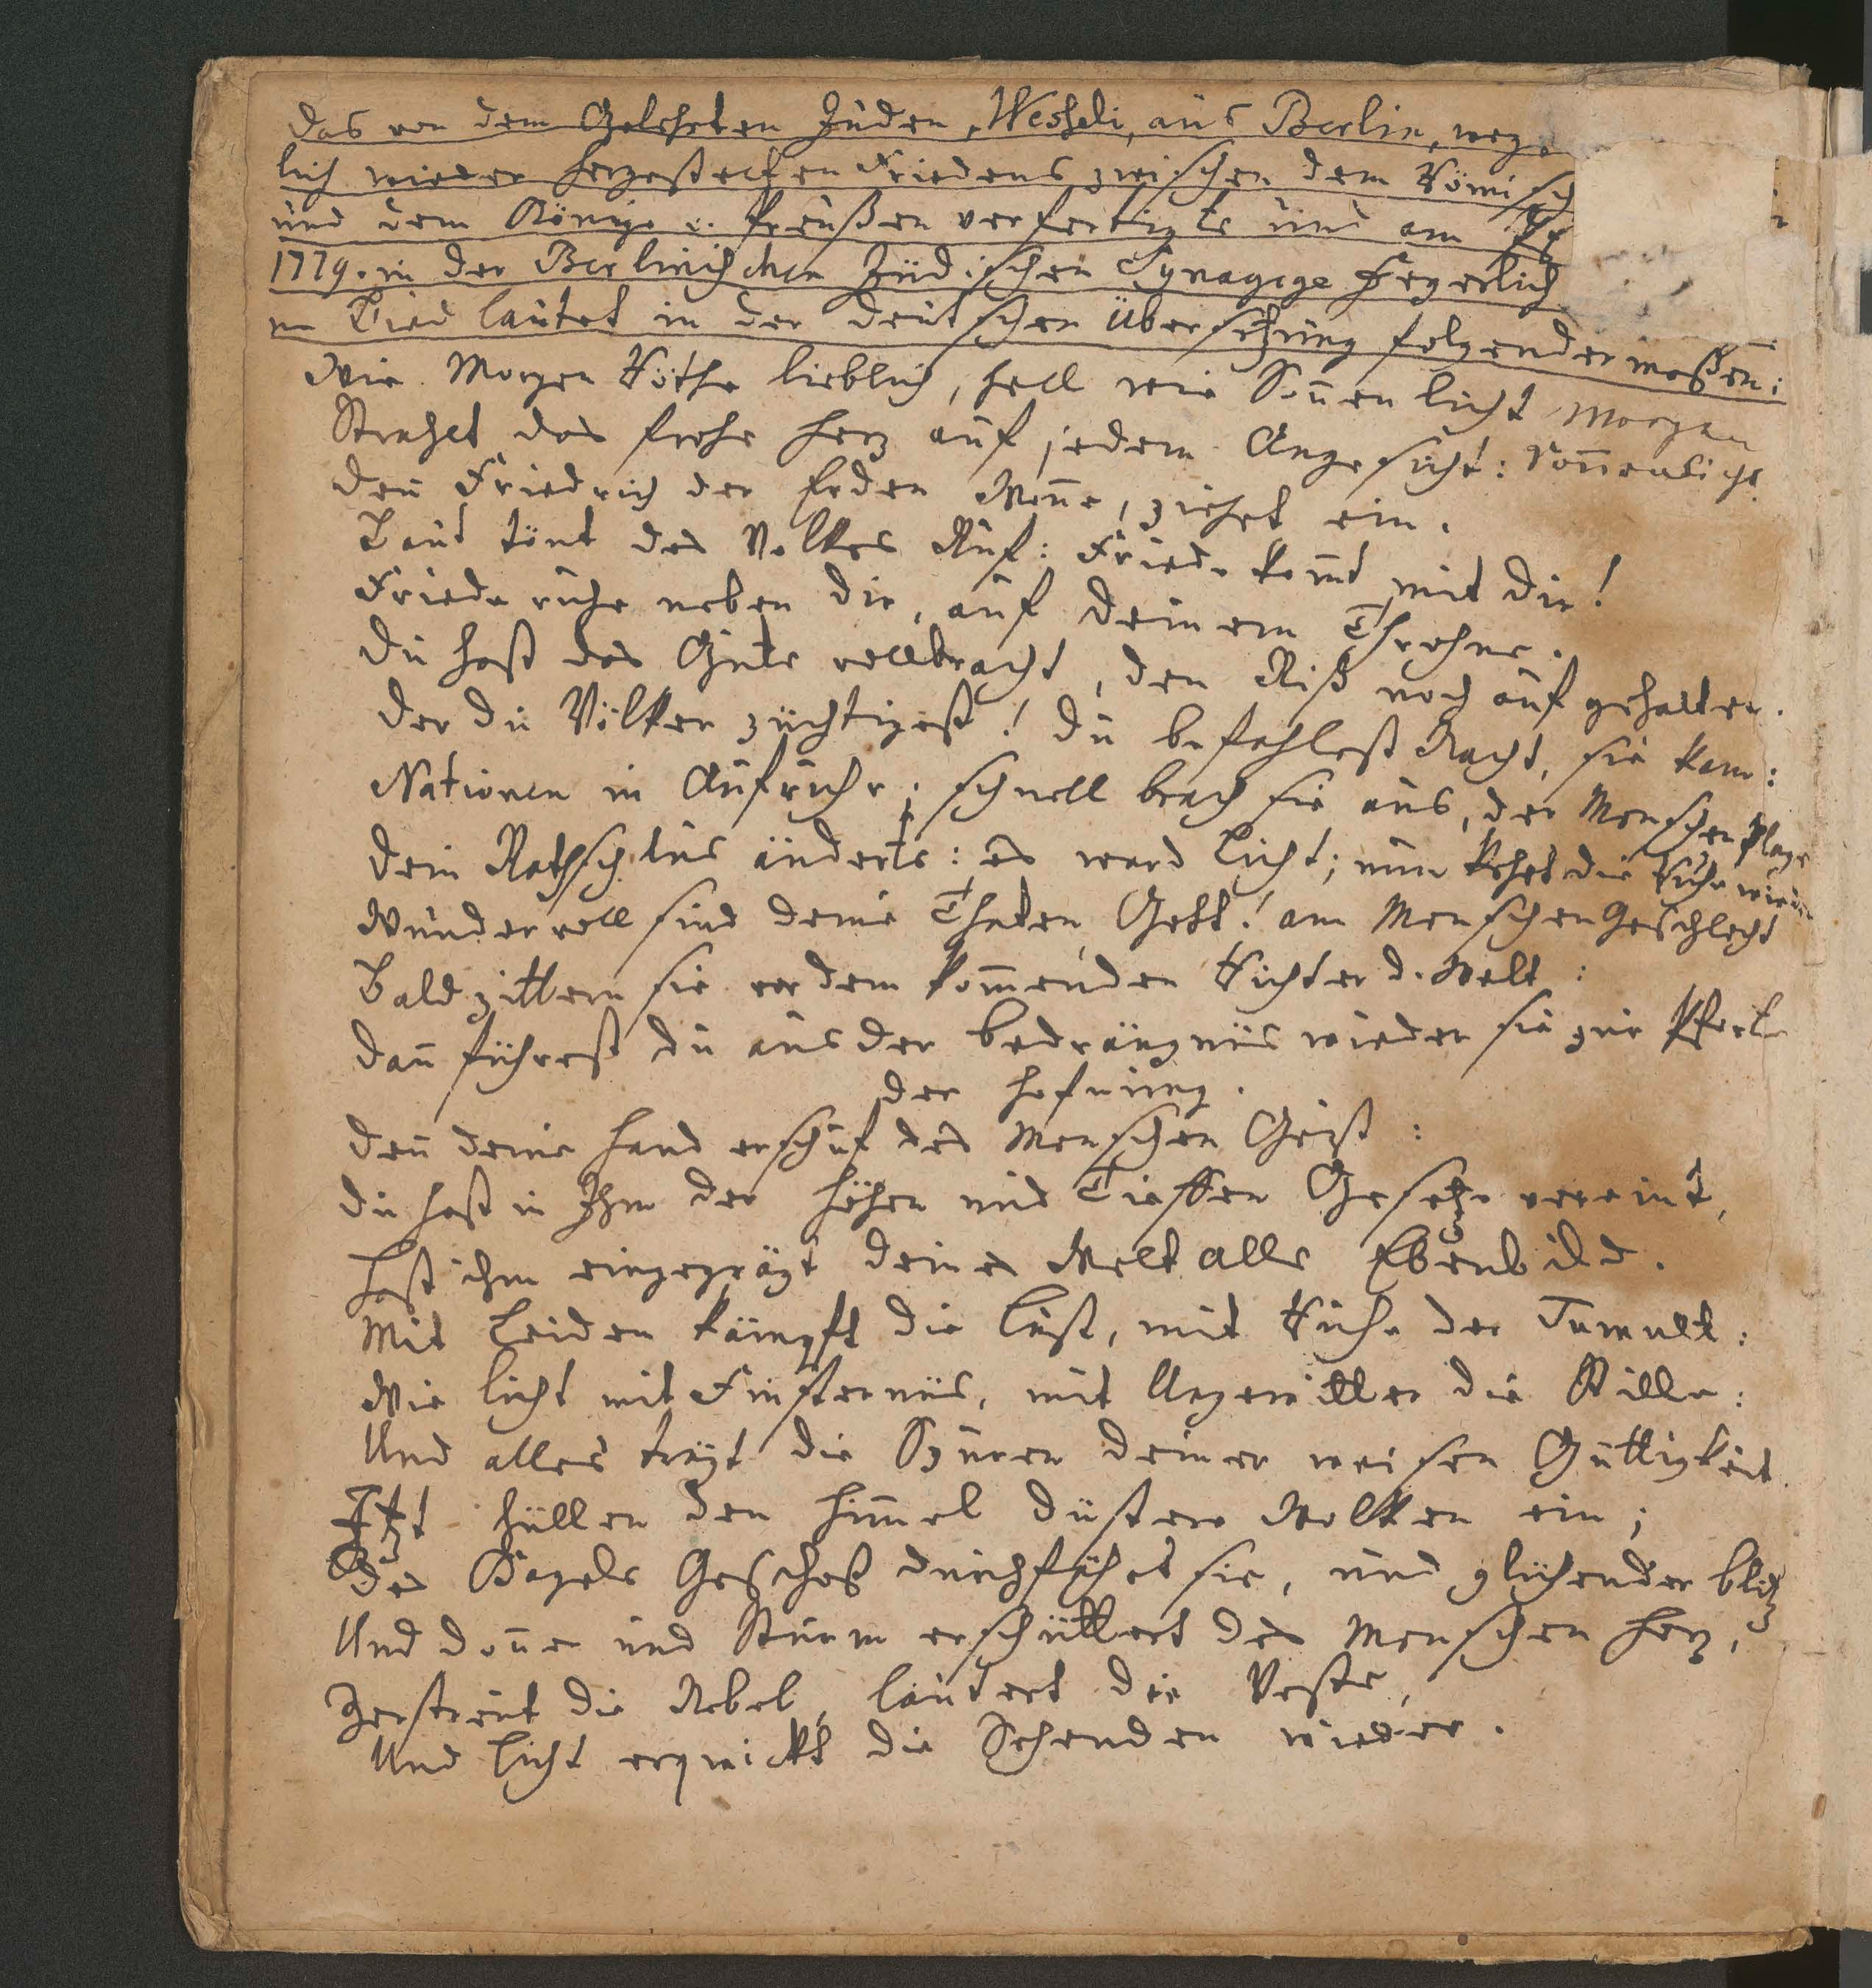 Das von dem Gelehrten Juden, Wesheli, aus Berlin, weg
lich wieder hergestelten Friedens zwischen dem Römisch
und dem Könige v. Preußen verfertigte und am
1779. in der Berlinischen Jüdischen Synagoge feyerlich
ne Lied lautet in der deutschen Übersetzung folgendermaßen:
Wie Morgen Röthe lieblich, hell wie Soñen licht Morgen
Strahlet das frohe Herz auf jedem Angesicht: Soñenlicht
Deñ Friedrich der Erden Woñe, ziehet ein.
Laut tönt des Volkes Ruf: Friede kom̃t mit dir!
Friede ruhe neben dir, auf deinem Throhne.
Du hast das Gute vollbracht, den Riß noch auf gehalten.
Der du Völker züchtigest! Du befahlest Nacht, sie kam:
Nationen in Aufruhr; schnell brach sie aus, der Menschen Plage
Dein Rathschlus änderts: es ward Licht; nun kehrt die Ruhe wieder
Wundervoll sind deine Thaten, Gott! am Menschen Geschlecht
Bald zittern sie vor dem kom̃enden Richter d. Welt:
Dañ führest du aus der Bedrängniis wieder sie zur Pforte
der Hofnung.
Deñ deine Hand erschuf des Menschen Geist:
Du hast in Ihm der Höhen und Tieffen Gesetze vereint,
Hast ihm eingeprägt deines Welt alls Ebenbild.
Mit Leiden kämpft die Lust, mit Ruhe der Tumult:
Wie Licht mit Finsterniis, mit Ungewitter die Stille:
Und alles trägt die Spuren deiner weisen Güttigkeit.
Itzt hüllen den Him̃el düstere Wolken ein;
Des Hagels Geschoß durchfähet sie, und glühender Blitz
Und Doñer und Sturm erschüttert des Menschen Herz,
Zerstreut die Nebel, läutert die Veste,
Und Licht erquickt die Sehenden wieder.